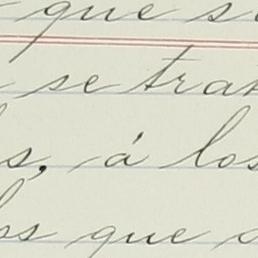 que s
se tra
s, á los
los que